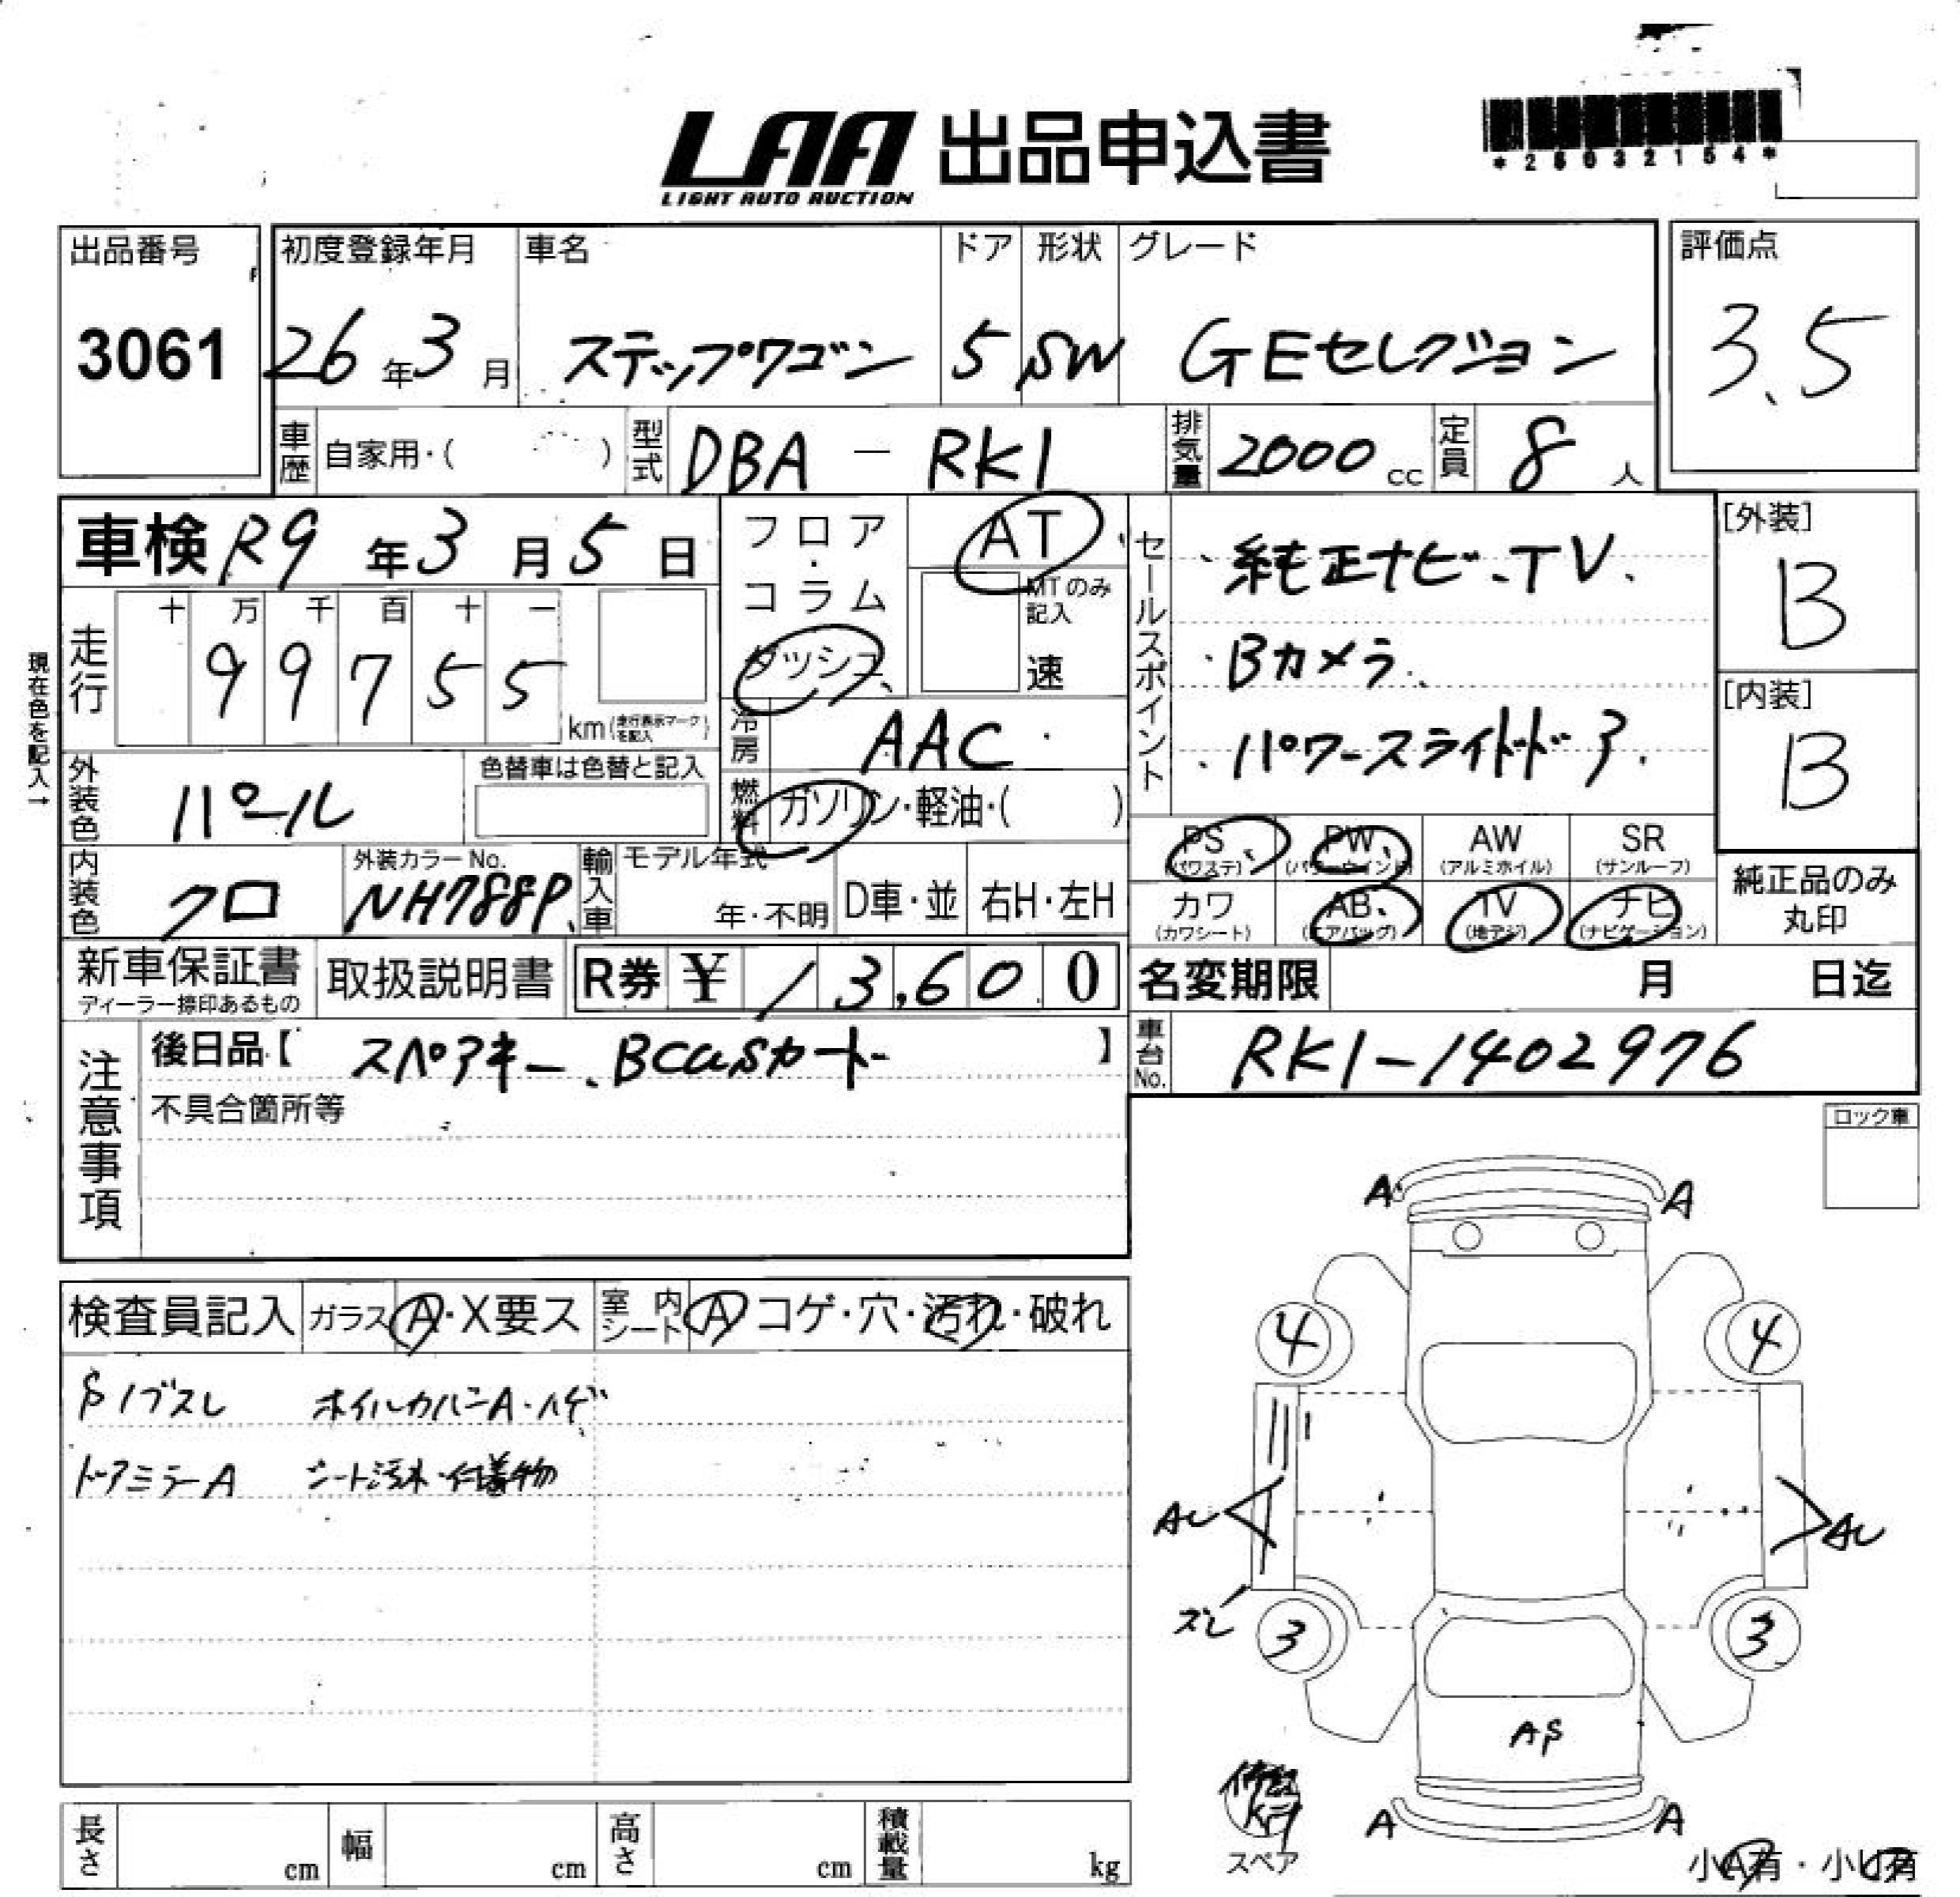 LAA 出品申込書
LIGHT AUTO AUCTION
*26032154*
出品番号
3061
初度登録年月
26年3月
車名
ステップワゴン
ドア
5
形状
SW
グレード
GEセレクション
評価点
3.5
車歴 自家用・( )
型式 DBA-RK1
排気量 2000 cc
定員 8 人
車検 R9年3月5日
フロア・コラム
ダッシュ
AT
MTのみ記入
速
セールスポイント
・純正ナビ、TV.
・Bカメラ.
・パワースライドドア.
[外装]
B
[内装]
B
現在色を記入→
走行
十 万 千 百 十 一
9 9 7 5 5
km(走行表示マークを記入)
冷房 AAC
燃料 ガソリン・軽油・( )
外装色 パール
色替車は色替と記入
内装色 クロ
外装カラーNo.
NH788P
輸入車
モデル年式
年・不明
D車・並
右H・左H
PS
(パワステ)
PW
(パワーウインド)
AW
(アルミホイル)
SR
(サンルーフ)
カワ
(カワシート)
AB
(エアバッグ)
TV
(地デジ)
ナビ
(ナビゲーション)
純正品のみ
丸印
新車保証書
ディーラー捺印あるもの
取扱説明書
R券 ¥ 13,600
名変期限 月 日迄
注意事項
後日品【 スペアキー、Bcasカード 】
不具合箇所等
車台No. RK1-1402976
ロック車
検査員記入
ガラス A・X要ス
室内シート A コゲ・穴・汚れ・破れ
ホイルカバーA・ハゲ
ドアミラーA シート汚れ・付着物
A A
4 4
AU AU
ズレ 3 3
AS
修理キット
スペア
A A
小A有・小U有
長さ cm
幅 cm
高さ cm
積載量 kg